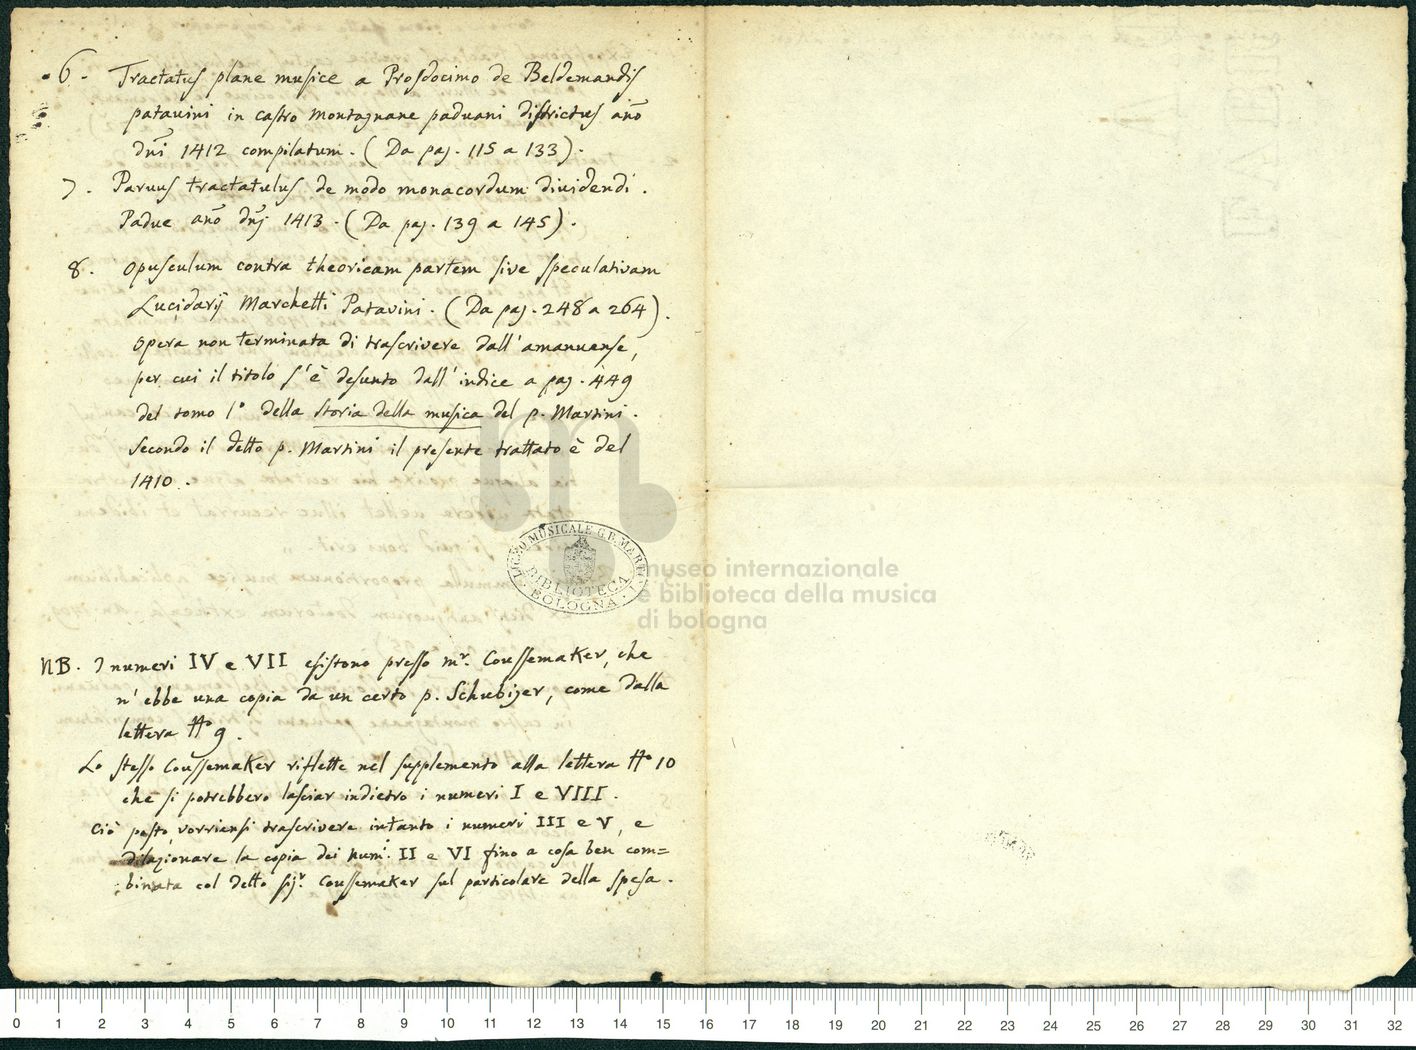 6. Tractatus plane musice a Prosdocimo de Beldemandis
patauini in castro montagnane paduani districtus año
dñi 1412 compilatum. (Da pag. 115 a 133).
7. Paruus tractatulus de modo monacordum diuidendi.
Padue año dñj 1413. (Da pag. 139 a 145).
8. Opusculum contra theoricam partem sive speculativam
Lucidarij Marchetti Patavini. (Da pag. 248 a 264).
Opera non terminata di trascrivere dall'amanuense,
per cui il titolo s'è desunto dall'indice a pag. 449
del tomo 1º della storia della musica del p. Martini.
Secondo il detto p. Martini il presente trattato è del
1410.
LICEO MUSICALE G.B. MARTINI
BIBLIOTECA
BOLOGNA
museo internazionale
e biblioteca della musica
di bologna
NB. I numeri IV e VII esistono presso mr. Coussemaker, che
n'ebbe una copia da un certo p. Schubiger, come dalla
lettera Nº 9.
Lo stesso Coussemaker riflette nel supplemento alla lettera Nº 10
che si potrebbero lasciar indietro i numeri I e VIII.
Ciò posto, vorriensi trascrivere intanto i numeri III e V, e
dilazionare la copia dei num. II e VI fino a cosa ben com=
binata col detto sigr. Coussemaker sul particolare della spesa.
0 1 2 3 4 5 6 7 8 9 10 11 12 13 14 15 16 17 18 19 20 21 22 23 24 25 26 27 28 29 30 31 32